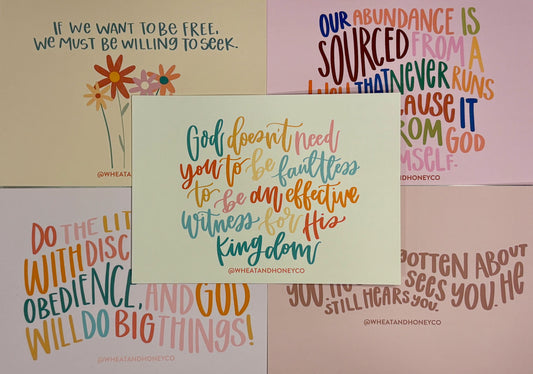 IF WE WANT TO BE FREE,
WE MUST BE WILLING TO SEEK.
@WHEATANDHONEYCO
OUR ABUNDANCE IS
SOURCED FROM A
THAT NEVER RUNS
IT
FROM GOD
@WHEATANDHONEYCO
God doesn't need
you to be faultless
to be an effective
witness for His
kingdom
@WHEATANDHONEYCO
DO THE
WITH
OBEDIENCE, AND GOD
WILL DO BIG THINGS!
@WHEATANDHONEYCO
ABOUT
SEES YOU. HE
STILL HEARS YOU.
@WHEATANDHONEYCO